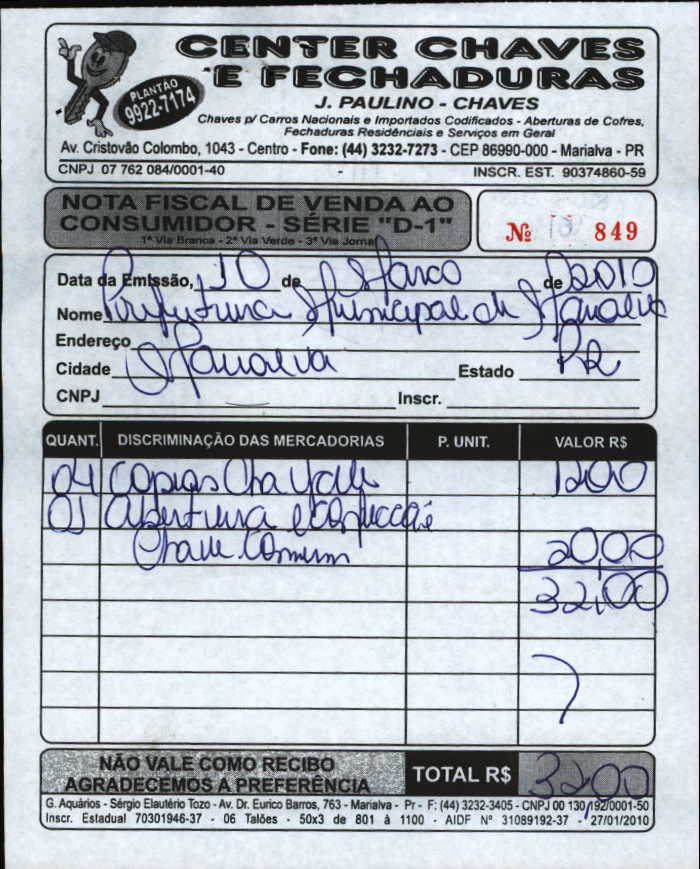 CENTER CHAVES
E FECHADURAS
PLANTÃO
9922-7174
J. PAULINO - CHAVES
Chaves p/ Carros Nacionais e Importados Codificados - Aberturas de Cofres,
Fechaduras Residênciais e Serviços em Geral
Av. Cristovão Colombo, 1043 - Centro - Fone: (44) 3232-7273 - CEP 86990-000 - Marialva - PR
CNPJ 07 762 084/0001-40 - INSCR. EST. 90374860-59
NOTA FISCAL DE VENDA AO
CONSUMIDOR - SÉRIE "D-1"
1ª Via Branca - 2ª Via Verde - 3ª Via Jornal
Nº 849
Data da Emissão, 10 de Março de 2010
Nome Prefeitura Municipal de Marialva
Endereço
Cidade Marialva Estado PR
CNPJ Inscr.
QUANT. DISCRIMINAÇÃO DAS MERCADORIAS P. UNIT. VALOR R$
04 Copias Cha Yale 12,00
01 Abertura e confecção
Chave Comum 20,00
32,00
NÃO VALE COMO RECIBO
AGRADECEMOS A PREFERÊNCIA
TOTAL R$ 32,00
G. Aquários - Sérgio Elautério Tozo - Av. Dr. Eurico Barros, 763 - Marialva - Pr - F: (44) 3232-3405 - CNPJ 00 130,192/0001-50
Inscr. Estadual 70301946-37 - 06 Talões - 50x3 de 801 à 1100 - AIDF Nº 31089192-37 - 27/01/2010